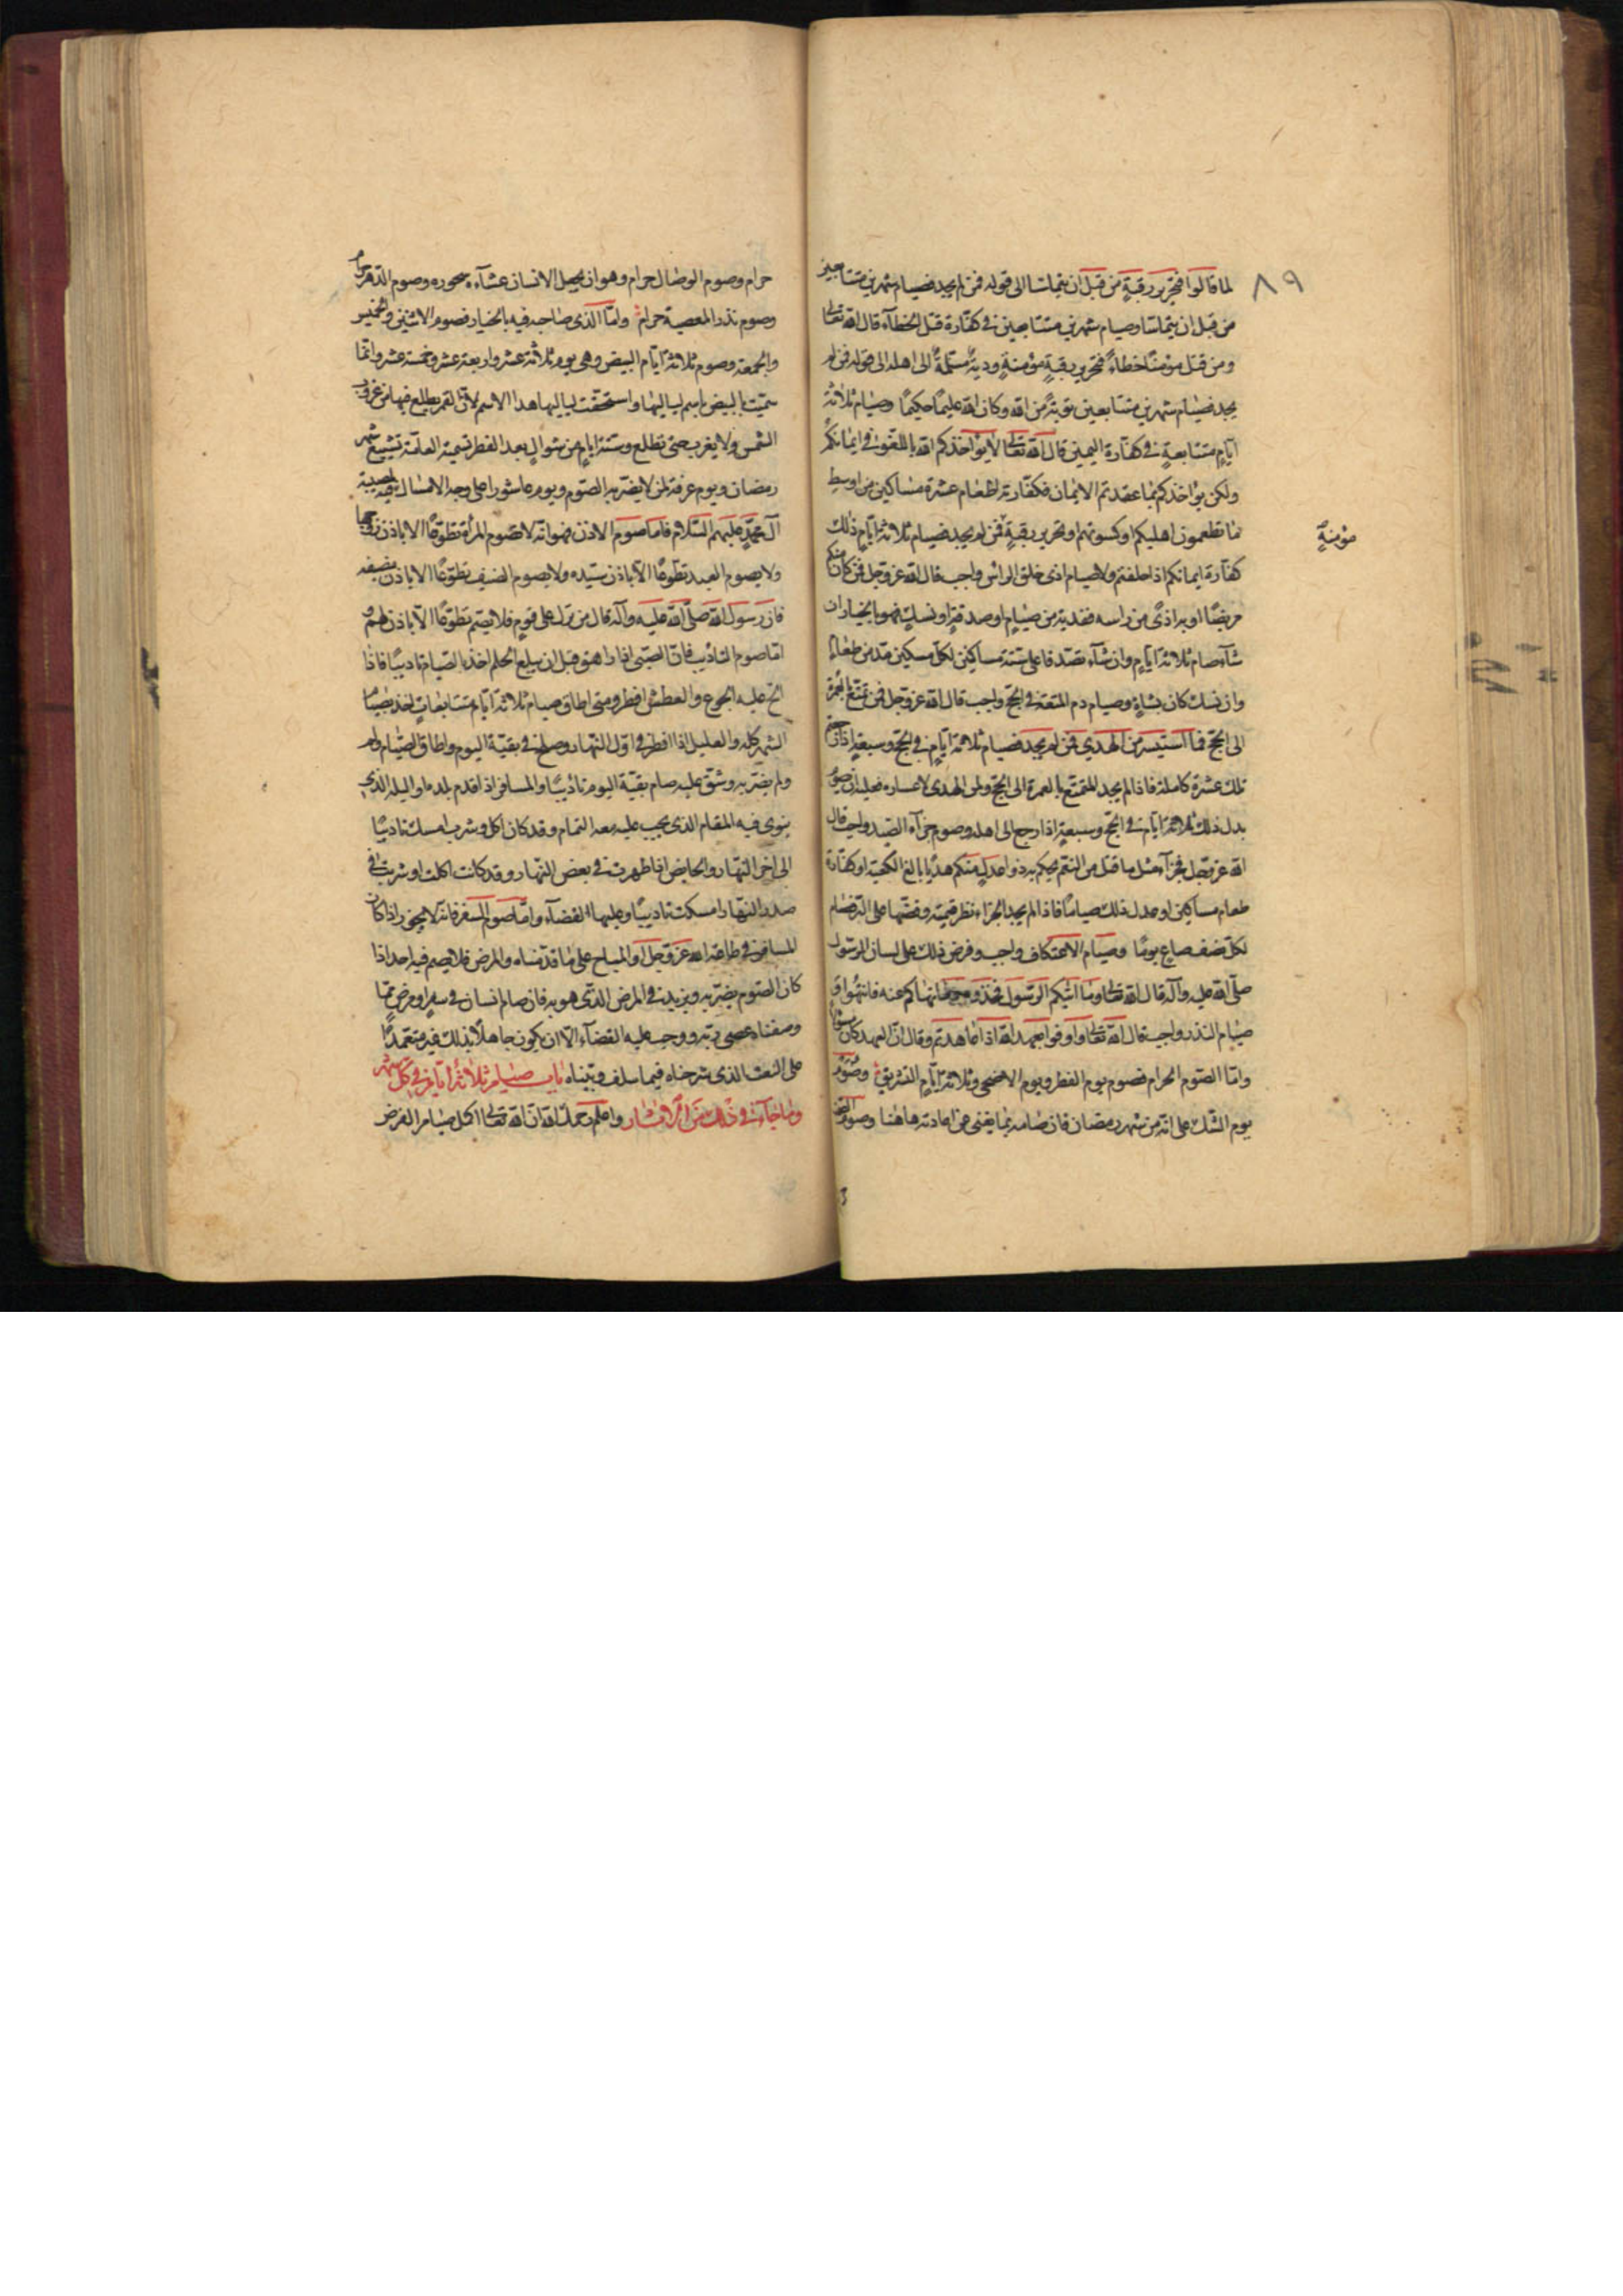 ٨٩
لما قالوا فتحرير رقبةٍ من قبل ان يتماسا الى قوله فمن لم يجد فصيام شهرين متتابعين
من قبل ان يتماسا وصيام شهرين متتابعين فى كفّارة قتل الخطآء قال الله تعالى
ومن قتل مؤمنًا خطاءً فتحرير رقبةٍ مؤمنةٍ وديةٌ مسلّمةٌ الى اهله الى قوله فمن لم
يجد فصيام شهرين متتابعين توبةً من الله وكان الله عليمًا حكيمًا وصيام ثلاثة
ايّامٍ متتابعةٍ فى كفّارة اليمين قال الله تعالى لا يؤاخذكم الله باللغو فى ايمانكم
ولكن يؤاخذكم بما عقدتم الايمان فكفّارته اطعام عشرة مساكين من اوسط
ما تطعمون اهليكم او كسوتهم او تحرير رقبةٍ فمن لم يجد فصيام ثلاثة ايّامٍ ذلك
مؤمنةٍ
كفّارة ايمانكم اذا حلفتم وصيام اذى حلق الراس واجب قال الله عزوجل فمن كان منكم
مريضًا او به اذىً من راسه ففدية من صيامٍ او صدقةٍ او نسكٍ فهو بالخيار ان
شآء صام ثلاثة ايّامٍ وان شآء تصدّق على ستّة مساكين لكلّ مسكين مدّ من طعام
وان نسك كان بشاةٍ وصيام دم المتعة فى الحجّ واجب قال الله عزوجل فمن تمتّع بالعمرة
الى الحجّ فما استيسر من الهدي فمن لم يجد فصيام ثلاثة ايّامٍ فى الحجّ وسبعةٍ اذا رجعتم
تلك عشرة كاملة فاذا لم يجد المتمتع بالعمرة الى الحجّ الهدى لاعساره فعليه ان يصوم
بدل ذلك ثلاثة ايّام فى الحجّ وسبعةٍ اذا رجع الى اهله وصوم جزآء الصّيد واجب قال
الله عزوجل فجزآء مثل ما قتل من النعم يحكم به ذوا عدلٍ منكم هديًا بالغ الكعبة او كفّارة
طعام مساكين او عدل ذلك صيامًا فاذا لم يجد الجزاء نظر قيمته وفضّها على
لكلّ نصف صاعٍ يومًا وصيام الاعتكاف واجب وفرض ذلك على لسان الرسول
صلّى الله عليه وآله قال الله تعالى وما اتيكم الرسول فخذوه وما نهاكم عنه فانتهوا و
صيام النذر واجب قال الله تعالى واوفوا بعهد الله اذا عاهدتم وقال انّ العهد كان مسئولًا
وامّا الصّوم الحرام فصوم يوم الفطر ويوم الاضحى وثلاثة ايّام التشريق وصوم
يوم الشّك على انّه من شهر رمضان فان صامه بما يغنى عن اعادته هاهنا وصوم الصمت
حرام وصوم الوصال حرام وهو ان يجعل الانسان عشآءه سحوره وصوم الدّهر حرام
وصوم نذر المعصية حرام وامّا الّذى صاحبه فيه بالخيار فصوم الاثنين والخميس
والجمعة وصوم ثلاثة ايّام البيض وهى يوم ثلاثة عشر واربعة عشر وخمسة عشر وانّما
سمّيت بالبيض باسم لياليها واستحقّت لياليها هذا الاسم لانّ القمر يطلع فيها من غروب
الشمس ولا يغرب حتى تطلع وستة ايامٍ من شوالٍ بعد الفطر تسمية العامّة تشييع شهر
رمضان ويوم عرفة لمن لا يضرّ به الصّوم ويوم عاشورا على وجه الامساك لمصيبة
آل محمّدٍ عليهم السّلام فاما صوم الاذن فهو انّه لا تصوم المرأة تطوّعًا الا باذن زوجها
ولا يصوم العبد تطوّعًا الّا باذن سيّده ولا يصوم الضيف تطوّعًا الا باذن مضيفه
فان رسول الله صلّى الله عليه وآله قال من نزل على قومٍ فلا يصم تطوّعًا الّا باذنهم و
امّا صوم التأديب فانّ الصبّى اذا راهق قبل ان يبلغ الحلم اخذ بالصّيام تاديبًا فاذا
الحّ عليه الجوع والعطش افطر ومتى اطاق صيام ثلاثة ايّام متتابعاتٍ اخذ بصيام
الشهر كلّه والعليل اذا افطر فى اوّل النّهار وصلح فى بقيّة اليوم واطاق الصّيام ولم
ولم يضرّ به وشقّ عليه صام بقيّة اليوم تاديبًا والمسافر اذا قدم بلده او البلد الذى
ينوى فيه المقام الذى يجب عليه معه التمام وقد كان اكل وشرب امسك تاديبًا
الى اخر النّهار والحايض اذا طهرت فى بعض النّهار وقد كانت اكلت او شربت فى
صدر النّهار امسكت تاديبًا وعليها القضآء وامّا صوم السفر فانّه لا يجوز اذا كان
المسافر فى طاعة الله عزوجل او المباح على ما قدّمناه والمرض فلا يصم فيه احد اذا
كان الصّوم يضرّ به ويزيد فى المرض الذّى هو به فان صام انسان فى سفرٍ او مرض ممّا
وصفناه عصى ربّه ووجب عليه القضآء الّا ان يكون جاهلًا بذلك غير متعمّد
على النعت الذى شرحناه فيما سلف وبيّناه باب صيام ثلاثة ايّام فى كلّ شهر
وما جآء فى ذلك من الآثار واعلم رحمك الله انّ الله تعالى اكمل صيام الفرض